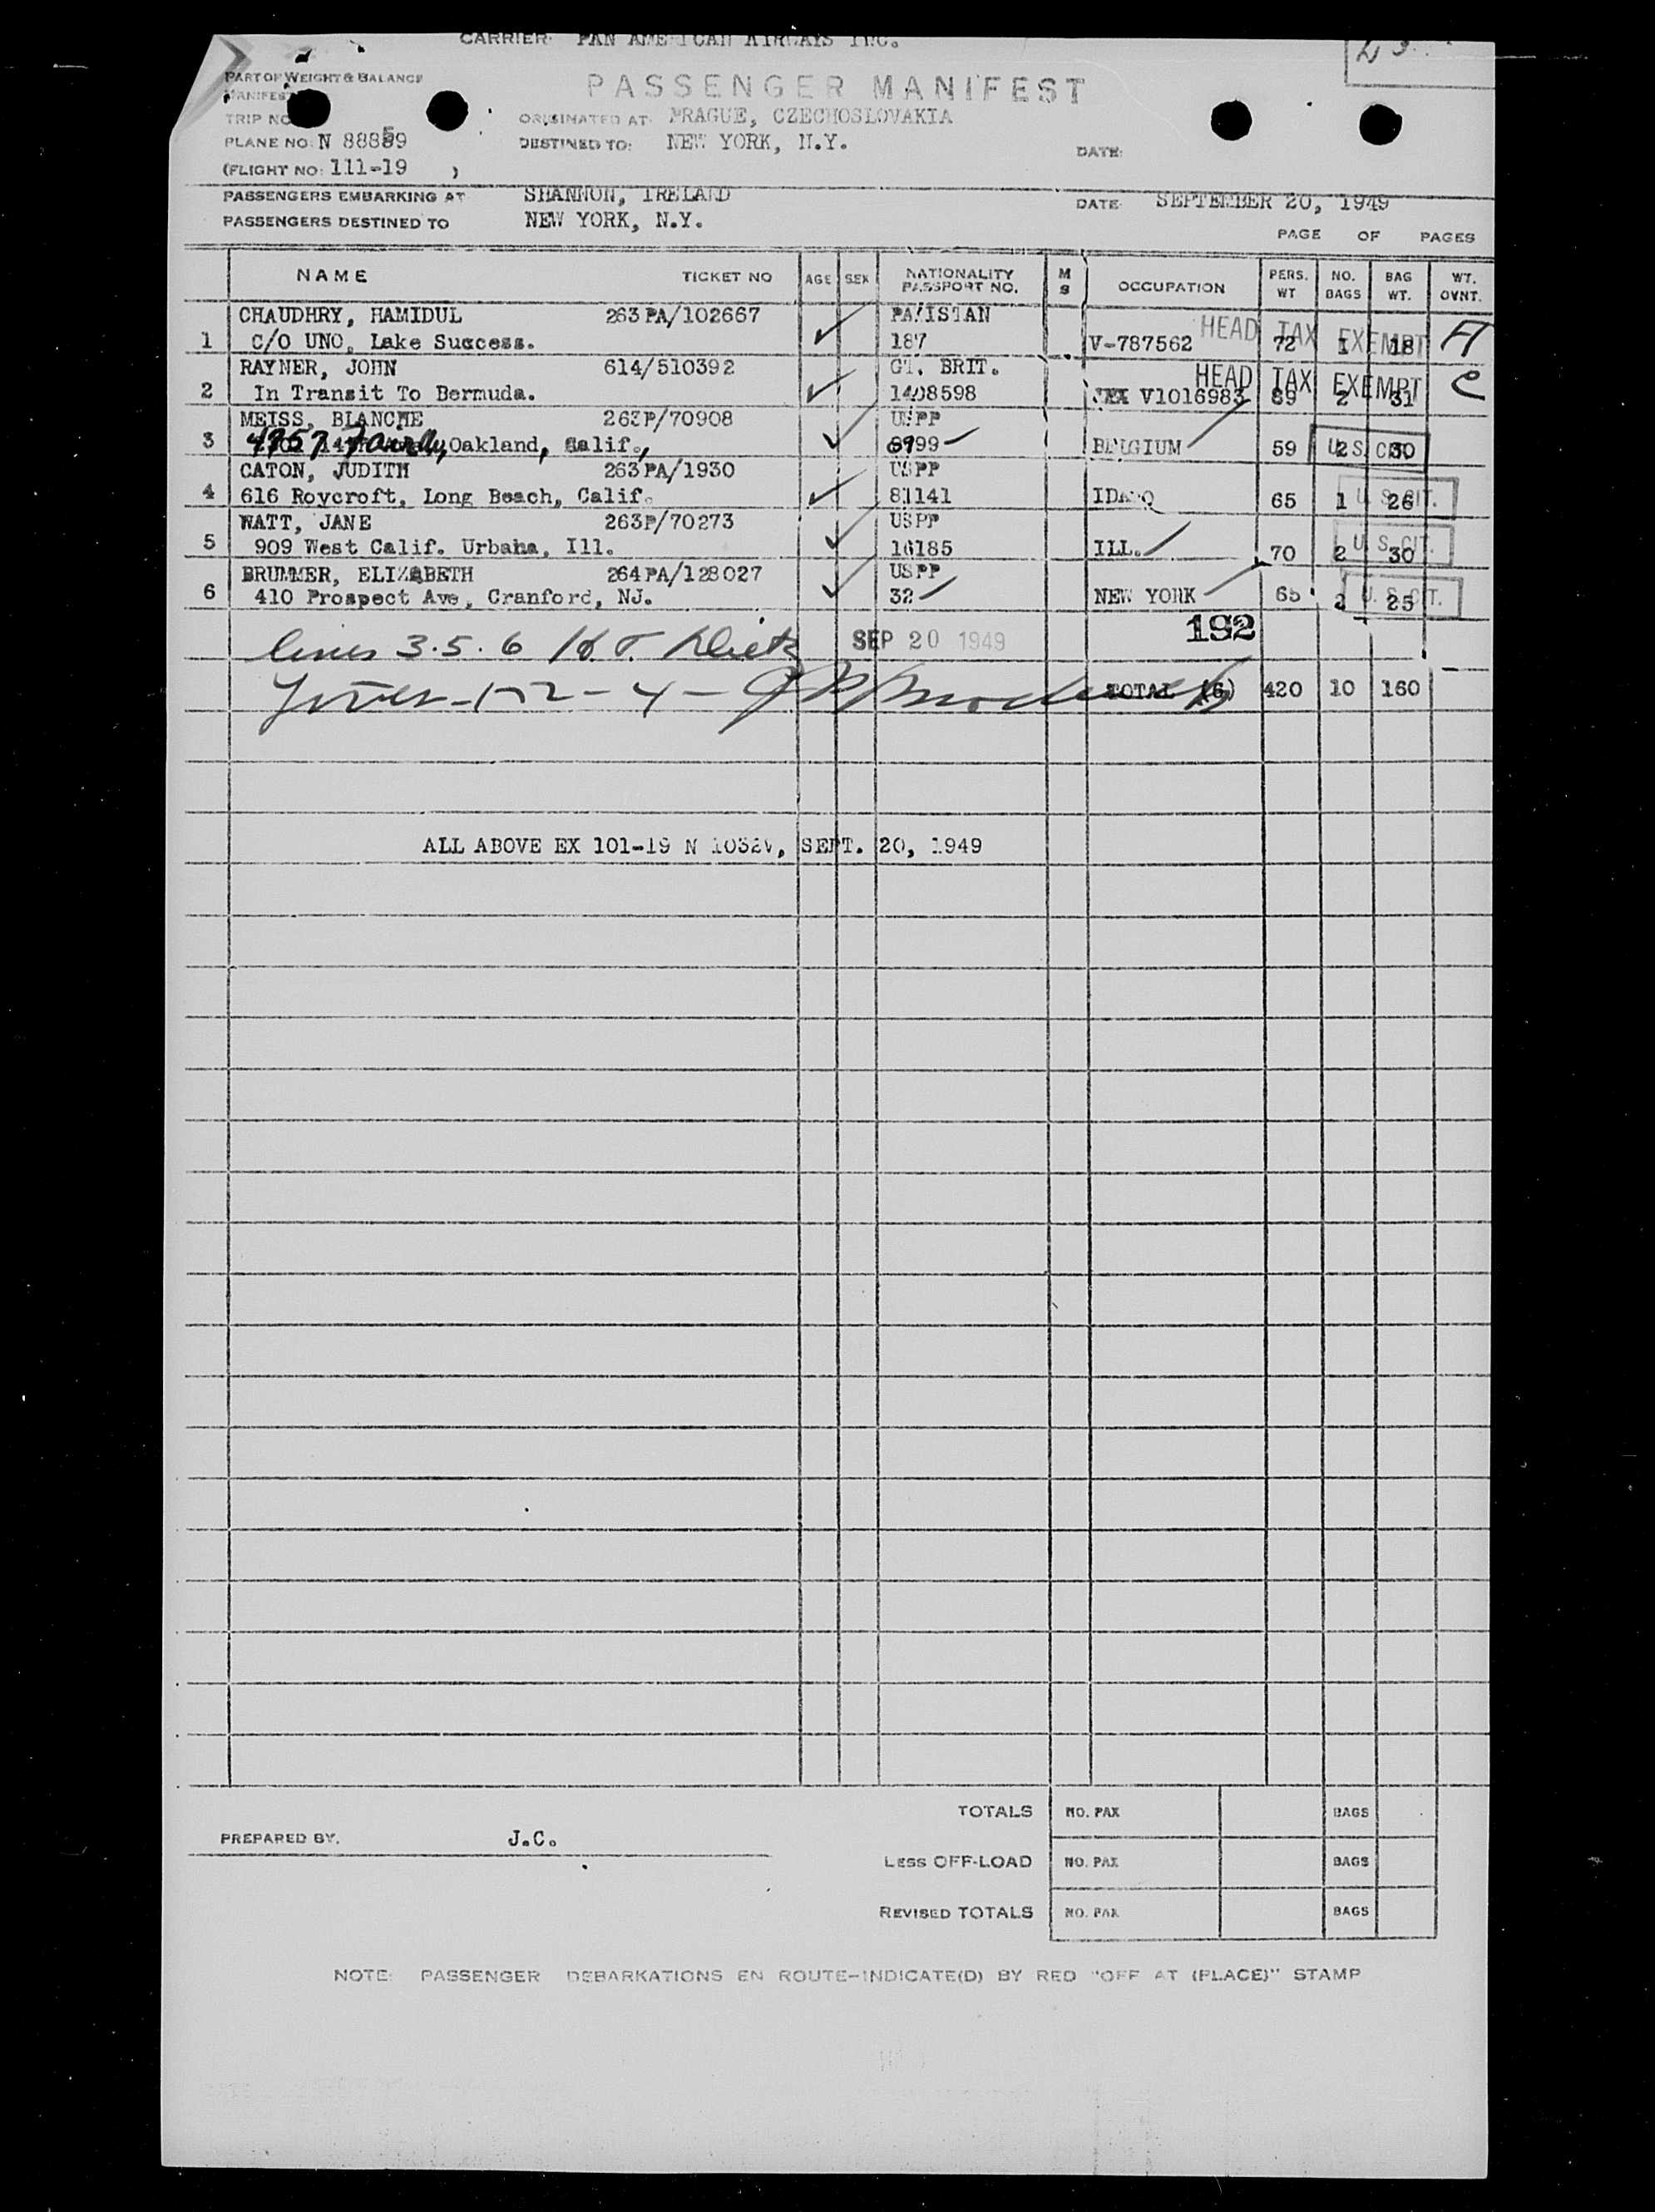 CARRIER: PAN AMERICAN AIRWAYS INC.
PART OF WEIGHT & BALANCE
MANIFEST
PASSENGER MANIFEST
TRIP NO
ORIGINATED AT: PRAGUE, CZECHOSLOVAKIA
PLANE NO: N 88859
DESTINED TO: NEW YORK, N.Y.
DATE:
(FLIGHT NO: 111-19 )
PASSENGERS EMBARKING AT SHANNON, IRELAND
DATE: SEPTEMBER 20, 1949
PASSENGERS DESTINED TO NEW YORK, N.Y.
PAGE OF PAGES
NAME TICKET NO AGE SEX NATIONALITY PASSPORT NO. M S OCCUPATION PERS. WT NO. BAGS BAG WT. WT. OVNT.
CHAUDHRY, HAMIDUL 263PA/102667 PAKISTAN
1 C/O UNO, Lake Success. 187 V-787562 HEAD TAX EXEMPT 72 1 18 A
RAYNER, JOHN 614/510392 GT. BRIT.
2 In Transit To Bermuda. 1408598 V1016983 HEAD TAX EXEMPT 89 2 31 C
MEISS, BLANCHE 263P/70908 USPP
3 Oakland, Calif., BELGIUM 59 2 30 U.S. CIT.
CATON, JUDITH 263PA/1930 USPP
4 616 Roycroft, Long Beach, Calif. 81141 IDAHO 65 1 26 U.S. CIT.
WATT, JANE 263P/70273 USPP
5 909 West Calif. Urbana, Ill. 16185 ILL. 70 2 30 U.S. CIT.
BRUMMER, ELIZABETH 264PA/128027 USPP
6 410 Prospect Ave, Cranford, NJ. 32 NEW YORK 65 2 25 U.S. CIT.
lines 3.5.6
SEP 20 1949
192
1-2-4-
TOTAL (6) 420 10 160
ALL ABOVE EX 101-19 N 1032V, SEPT. 20, 1949
TOTALS NO. PAX BAGS
PREPARED BY. J.C.
LESS OFF-LOAD NO. PAX BAGS
REVISED TOTALS NO. PAX BAGS
NOTE: PASSENGER DEBARKATIONS EN ROUTE-INDICATE(D) BY RED "OFF AT (PLACE)" STAMP